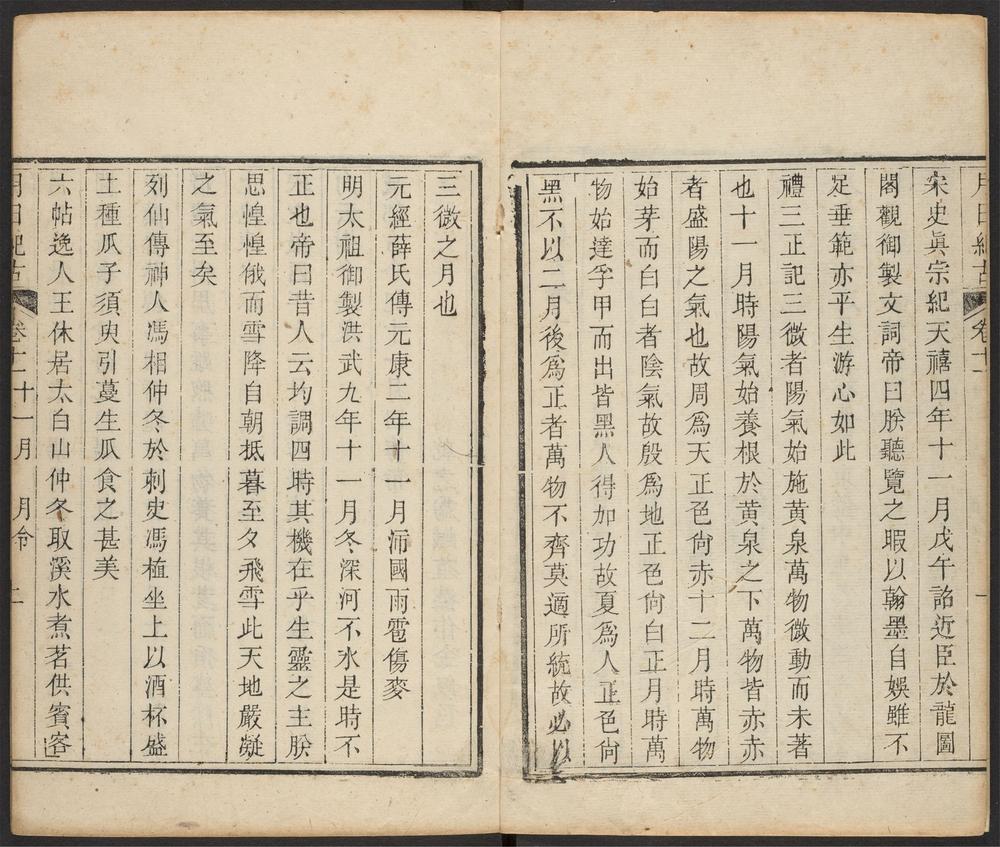 月日紀古 卷十一
宋史眞宗紀天禧四年十一月戊午詔近臣於龍圖
閣觀御製文詞帝曰朕聽覽之暇以翰墨自娛雖不
足垂範亦平生游心如此
禮三正記三微者陽氣始施黃泉萬物微動而未著
也十一月時陽氣始養根於黃泉之下萬物皆赤赤
者盛陽之氣也故周爲天正色尙赤十二月時萬物
始芽而白白者陰氣故殷爲地正色尙白正月時萬
物始達孚甲而出皆黑人得加功故夏爲人正色尙
黑不以二月後爲正者萬物不齊莫適所統故必以
三微之月也
元經薛氏傳元康二年十一月沛國雨雹傷麥
明太祖御製洪武九年十一月冬深河不氷是時不
正也帝曰昔人云均調四時其機在乎生靈之主朕
思惶惶俄而雪降自朝抵暮至夕飛雪此天地嚴凝
之氣至矣
列仙傳神人馮相仲冬於刺史馮植坐上以酒杯盛
土種瓜子須臾引蔓生瓜食之甚美
六帖逸人王休居太白山仲冬取溪水煮茗供賓客
月日紀古 卷十一 十一月 月令 二